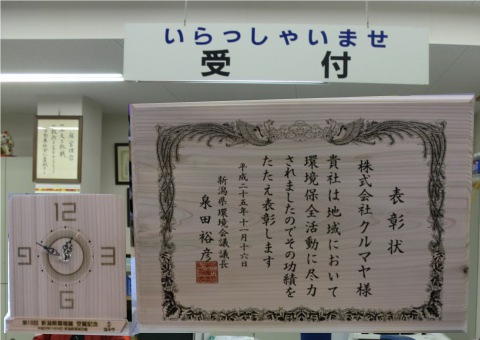 いらっしゃいませ
受付
表彰状
株式会社クルマヤ様
貴社は地域において
環境保全活動に尽力
されましたのでその功績を
たたえ表彰します
平成二十五年十一月十六日
新潟県環境会議議長
泉田裕彦
12
3
6
9